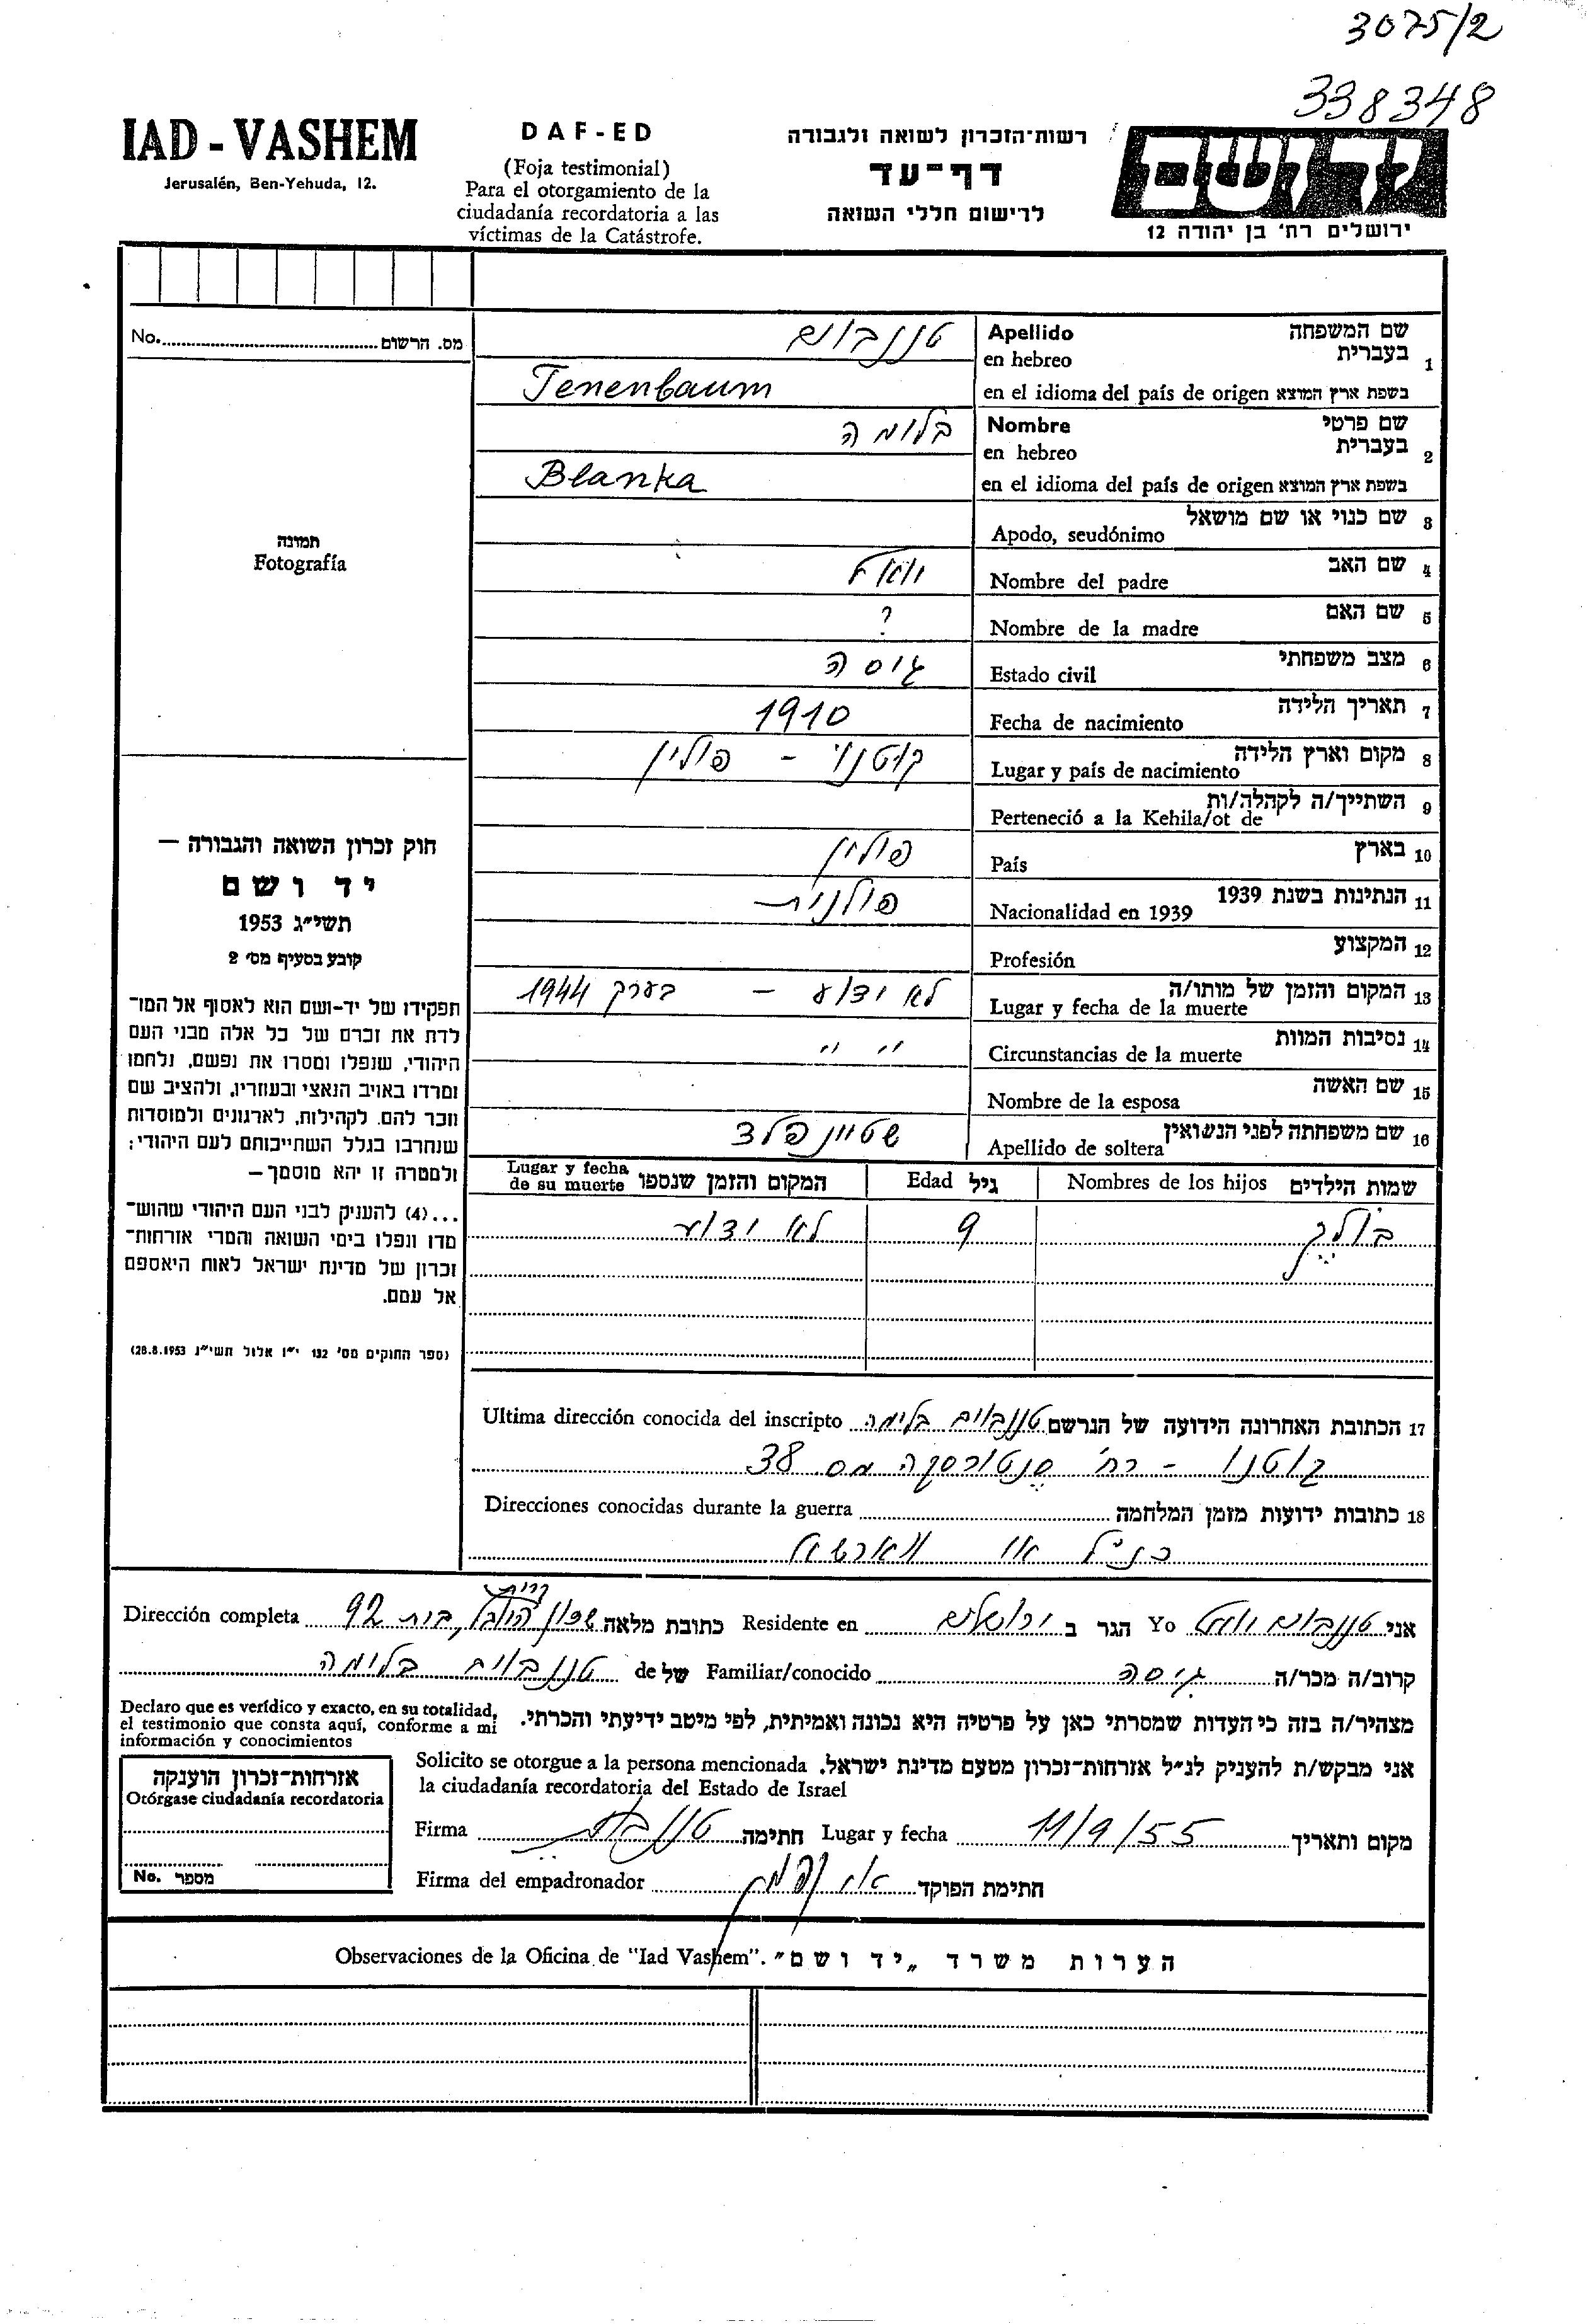 3075/2
338348
IAD - VASHEM
Jerusalén, Ben-Yehuda, 12.
DAF-ED
(Foja testimonial)
Para el otorgamiento de la
ciudadanía recordatoria a las
víctimas de la Catástrofe.
רשות־הזכרון לשואה ולגבורה
דף־עד
לרישום חללי השואה
ידושם
ירושלים רח׳ בן יהודה 12
No. מס. הרשום
תמונה
Fotografía
חוק זכרון השואה והגבורה —
יד ושם
תשי״ג 1953
קובע בסעיף מס׳ 2
תפקידו של יד-ושם הוא לאסוף אל המו־
לדת את זכרם של כל אלה מבני העם
היהודי, שנפלו ומסרו את נפשם, נלחמו
ומרדו באויב הנאצי ובעוזריו, ולהציב שם
וזכר להם, לקהילות, לארגונים ולמוסדות
שנחרבו בגלל השתייכותם לעם היהודי;
ולמטרה זו יהא מוסמך—
...(4) להעניק לבני העם היהודי שהוש־
מדו ונפלו בימי השואה והמרי אזרחות־
זכרון של מדינת ישראל לאות היאספם
אל עמם.
(ספר החוקים מס׳ 132 י״ז אלול תשי״ג 28.8.1953)
1 שם המשפחה
בעברית
Apellido
en hebreo
טננבוים
בשפת ארץ המוצא en el idioma del país de origen
Tenenbaum
2 שם פרטי
בעברית
Nombre
en hebreo
בלומה
בשפת ארץ המוצא en el idioma del país de origen
Blanka
3 שם כנוי או שם מושאל
Apodo, seudónimo
4 שם האב
Nombre del padre
5 שם האם
Nombre de la madre
?
6 מצב משפחתי
Estado civil
גיסה
7 תאריך הלידה
Fecha de nacimiento
1910
8 מקום וארץ הלידה
Lugar y país de nacimiento
קוטנו - פולין
9 השתייך/ה לקהלה/ות
Perteneció a la Kehila/ot de
10 בארץ
País
פולין
11 הנתינות בשנת 1939
Nacionalidad en 1939
פולנית
12 המקצוע
Profesión
13 המקום והזמן של מותו/ה
Lugar y fecha de la muerte
לא ידוע - בערך 1944
14 נסיבות המוות
Circunstancias de la muerte
״ ״
15 שם האשה
Nombre de la esposa
16 שם משפחתה לפני הנשואין
Apellido de soltera
שטיינפלד
שמות הילדים Nombres de los hijos גיל Edad המקום והזמן שנספו Lugar y fecha de su muerte
בולק 9 לא ידוע
17 הכתובת האחרונה הידועה של הנרשם Ultima dirección conocida del inscripto טננבוים בלימה
קוטנו - רח׳ סנטורסקה מס 38
18 כתובות ידועות מזמן המלחמה Direcciones conocidas durante la guerra
כנ״ל או
אני טננבוים Yo הגר ב ירושלים Residente en כתובת מלאה Dirección completa שכון קרית היובל, בית 92
קרוב/ה מכר/ה גיסה Familiar/conocido של de טננבוים בלימה
מצהיר/ה בזה כי העדות שמסרתי כאן על פרטיה היא נכונה ואמיתית, לפי מיטב ידיעתי והכרתי.
Declaro que es verídico y exacto, en su totalidad,
el testimonio que consta aquí, conforme a mi
información y conocimientos
אני מבקש/ת להעניק לנ״ל אזרחות־זכרון מטעם מדינת ישראל.
Solicito se otorgue a la persona mencionada
la ciudadanía recordatoria del Estado de Israel
מקום ותאריך 11/9/55 Lugar y fecha חתימה Firma
חתימת הפוקד Firma del empadronador
אזרחות־זכרון הוענקה
Otórgase ciudadanía recordatoria
No. מספר
הערות משרד „יד ושם״. Observaciones de la Oficina de "Iad Vashem".